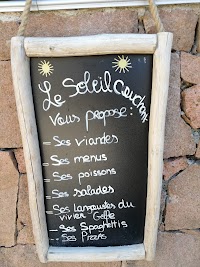 Le Soleil Couchant
Vous propose :
- Ses viandes
- Ses menus
- Ses poissons
- Ses salades
- Ses Langoustes du
vivier
- Ses Spaghettis
- Ses Pizzas